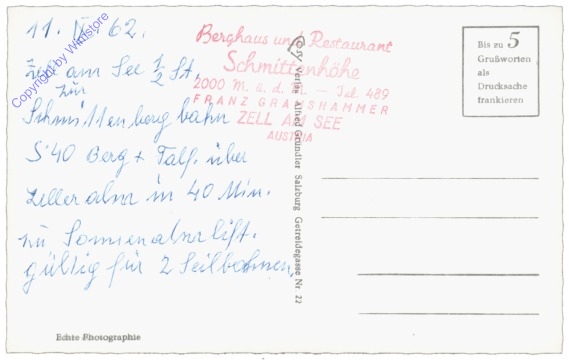 11. V. 62.
Zell am See 1/2 St.
zur
Schmittenbergbahn
S 40 Berg + Talf. über
Zelleralm in 40 Min.
zu Sonnenalmlift.
gültig für 2 Seilbahnen.
Copyright by Winistore
Berghaus und Restaurant
Schmittenhöhe
2000 M. ü. d. M. — Tel. 489
FRANZ
ZELL AM SEE
AUSTRIA
Verlag Alfred Gründler Salzburg Getreidegasse Nr. 22
Bis zu 5
Grußworten
als
Drucksache
frankieren
Echte Photographie